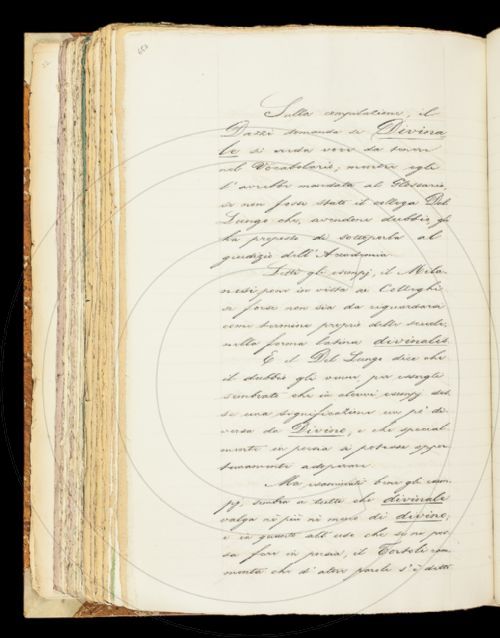 Sulla compilazione, il
Dazzi domanda se Divina
le si creda vero da tenere
nel Vocabolario; mentre egli
l'avrebbe mandata al Glossario,
se non fosse stato il collega Del
Lungo che, avendone dubbio, gli
ha proposto di sottoporla al
giudizio dell'Accademia.
Letti gli esempj, il Mila-
nesi pone in vista ai Colleghi
se forse non sia da riguardare
come termine proprio delle scuole;
nella forma latina divinalis.
E il Del Lungo dice che
il dubbio gli venne, per essergli
sembrato che in alcuni esempj aves-
se una significazione un po' di-
versa da Divino, e che special
mente in poesia si potesse oppor
tunamente adoperare.
Ma esaminati bene gli esem-
pj, sembra a tutti che divinale
valga nè più nè meno di divino;
e in quanto all'uso che se ne pos-
sa fare in poesia, il Tortoli ram
menta che d'altre parole s'è detto